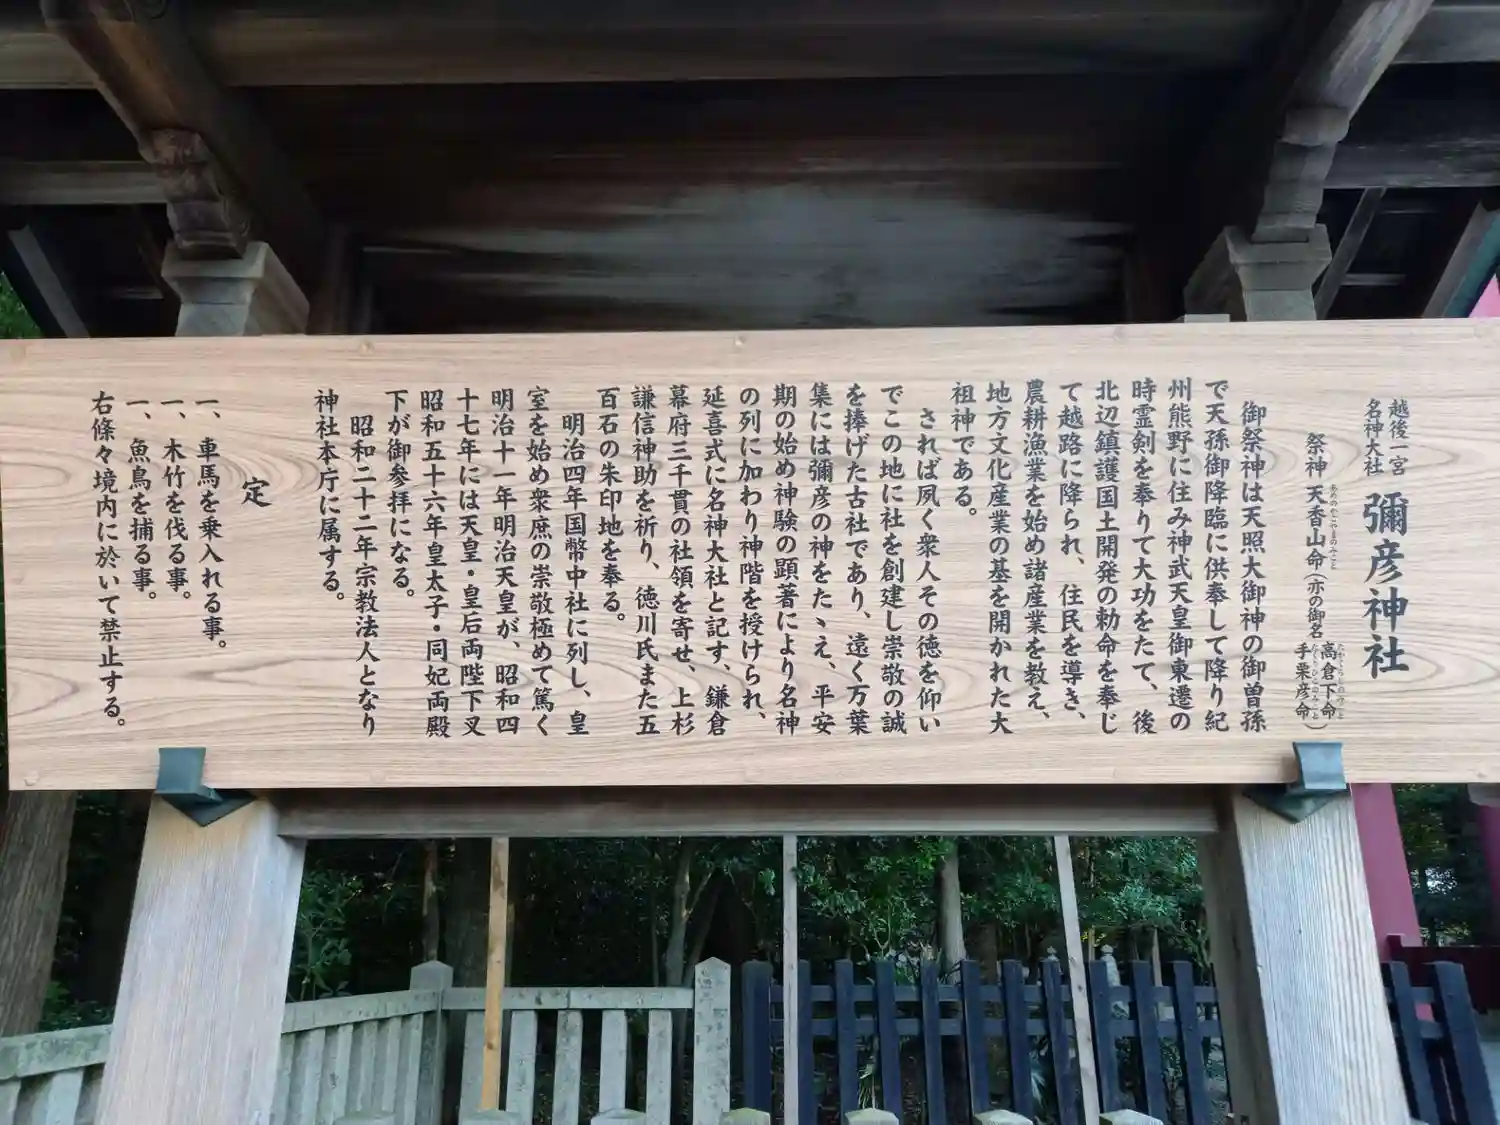 越後一宮
名神大社
彌彦神社
祭神 天香山命(亦の御名 高倉下命
手栗彦命)
あめのかごやまのみこと
御祭神は天照大御神の御曽孫
で天孫御降臨に供奉して降り紀
州熊野に住み神武天皇御東遷の
時霊剣を奉りて大功をたて、後
北辺鎮護国土開発の勅命を奉じ
て越路に降られ、住民を導き、
農耕漁業を始め諸産業を教え、
地方文化産業の基を開かれた大
祖神である。
されば夙く衆人その徳を仰い
でこの地に社を創建し崇敬の誠
を捧げた古社であり、遠く万葉
集には彌彦の神をたゝえ、平安
期の始め神験の顕著により名神
の列に加わり神階を授けられ、
延喜式に名神大社と記す、鎌倉
幕府三千貫の社領を寄せ、上杉
謙信神助を祈り、徳川氏また五
百石の朱印地を奉る。
明治四年国幣中社に列し、皇
室を始め衆庶の崇敬極めて篤く
明治十一年明治天皇が、昭和四
十七年には天皇・皇后両陛下又
昭和五十六年皇太子・同妃両殿
下が御参拝になる。
昭和二十二年宗教法人となり
神社本庁に属する。
定
一、車馬を乗入れる事。
一、木竹を伐る事。
一、魚鳥を捕る事。
右條々境内に於いて禁止する。